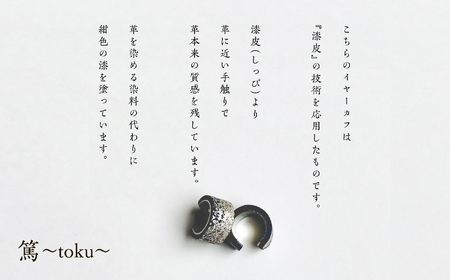 こちらのイヤーカフは
『漆皮』の技術を応用したものです。
漆皮(しっぴ)より
革に近い手触りで
革本来の質感を残しています。
革を染める染料の代わりに
紺色の漆を塗っています。
篤〜toku〜